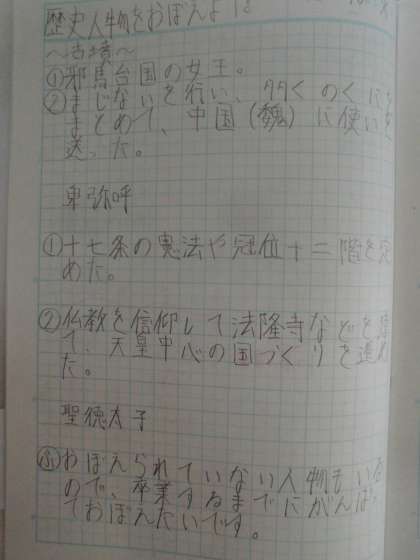 歴史人物をおぼえよう!
〜古墳〜
①邪馬台国の女王。
②まじないを行い、多くのくにを
まとめて、中国(魏)に使いを
送った。
卑弥呼
①十七条の憲法や冠位十二階を定
めた。
②仏教を信仰して法隆寺などを建
て、天皇中心の国づくりを進め
た。
聖徳太子
㋫おぼえられていない人物もいる
ので、卒業するまでにがんばっ
ておぼえたいです。